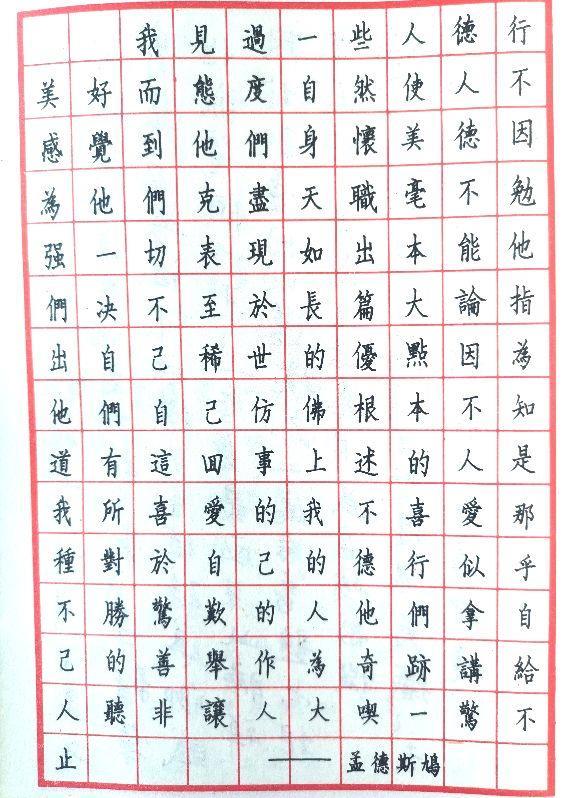 我見過一些人德行
美好而態度自然使人不
感覺到他們身懷美德因
為他們克盡天職毫不勉
强一切表現如出本能他
們决不至於長篇大論指
出自己稀世的優點因為
他們自己仿佛根本不知
道有這囬事上述的人是
我所喜愛的我不喜愛那
種對於自己的德行似乎
不勝驚歎的人他們拿自
己的善舉作為奇跡講給
人聽非讓人大喫一驚不
止 ——孟德斯鳩